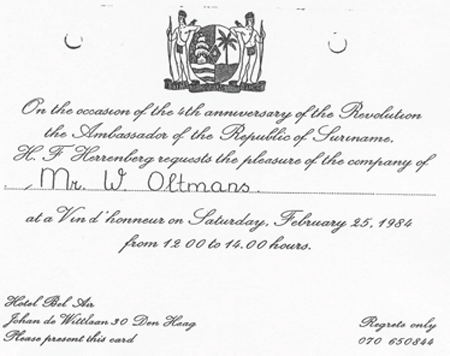 On the occasion of the 4th anniversary of the Revolution
the Ambassador of the Republic of Suriname.
H. F Herrenberg requests the pleasure of the company of
Mr. W. Oltmans.
at a Vin d'honneur on Saturday, February 25, 1984
from 12.00 to 14.00 hours.
Hotel Bel Air
Johan de Wittlaan 30 Den Haag
Please present this card
Regrets only
070 650844